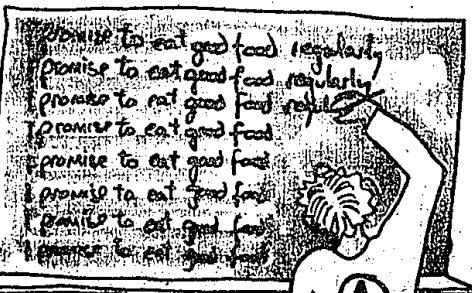 I promise to eat good food regularly
I promise to eat good food regularly
I promise to eat good food regul
I promise to eat good food
I promise to eat good food
I promise to eat good food
I promise to eat good food
I promise to eat good food
A